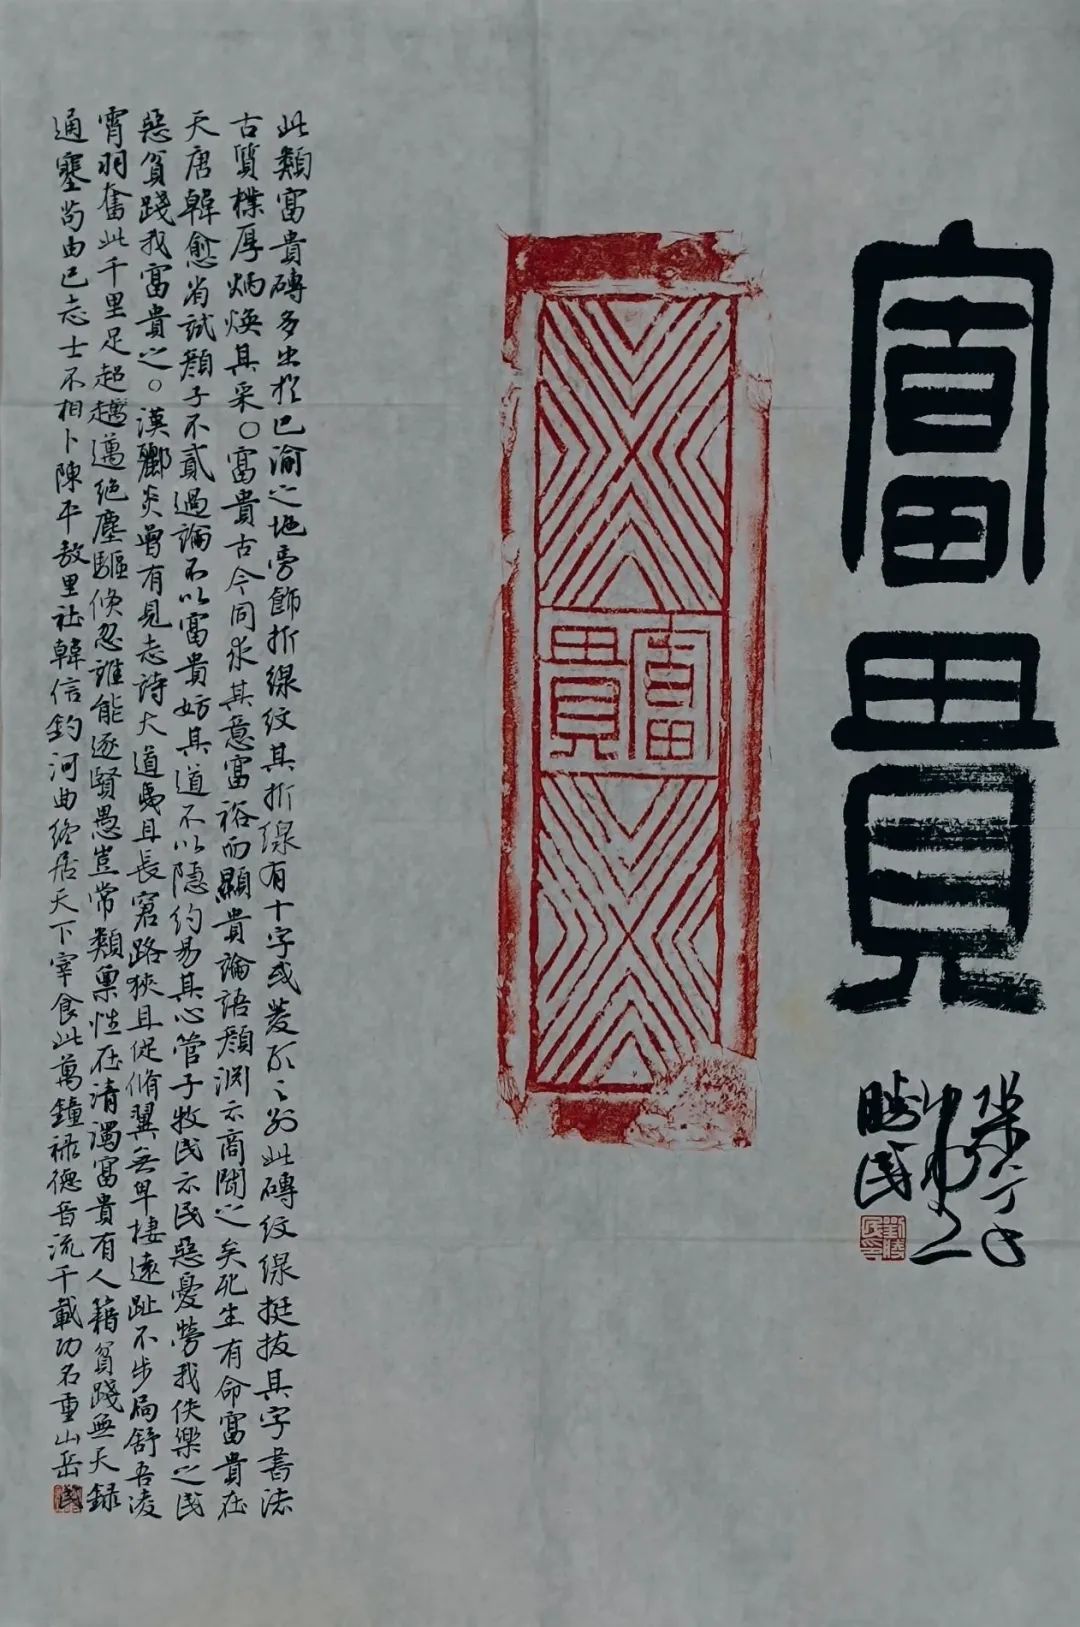 富貴
勝民
富貴
此類富貴磚多出於巴渝之地旁飾折線紋其折線有十字或菱形之別此磚紋線挺拔其字書法
古質樸厚炳煥其采○富貴古今同求其意富裕而顯貴論語顏淵示商聞之矣死生有命富貴在
天唐韓愈省試顏子不貳過論不以富貴妨其道不以隱約易其心管子牧民示民惡憂勞我佚樂之民
惡貧踐我富貴之○漢酈炎曾有見志詩大道夷且長窘路狹且促脩翼無卑棲遠趾不步局舒吾凌
霄羽奮此千里足超邁絕塵驅倏忽誰能逐賢愚豈常類稟性在清濁富貴有人籍貧踐無天錄
通塞苟由已志士不相卜陳平敖里社韓信釣河曲終居天下宰食此萬鐘祿德音流千載功名重山岳
民